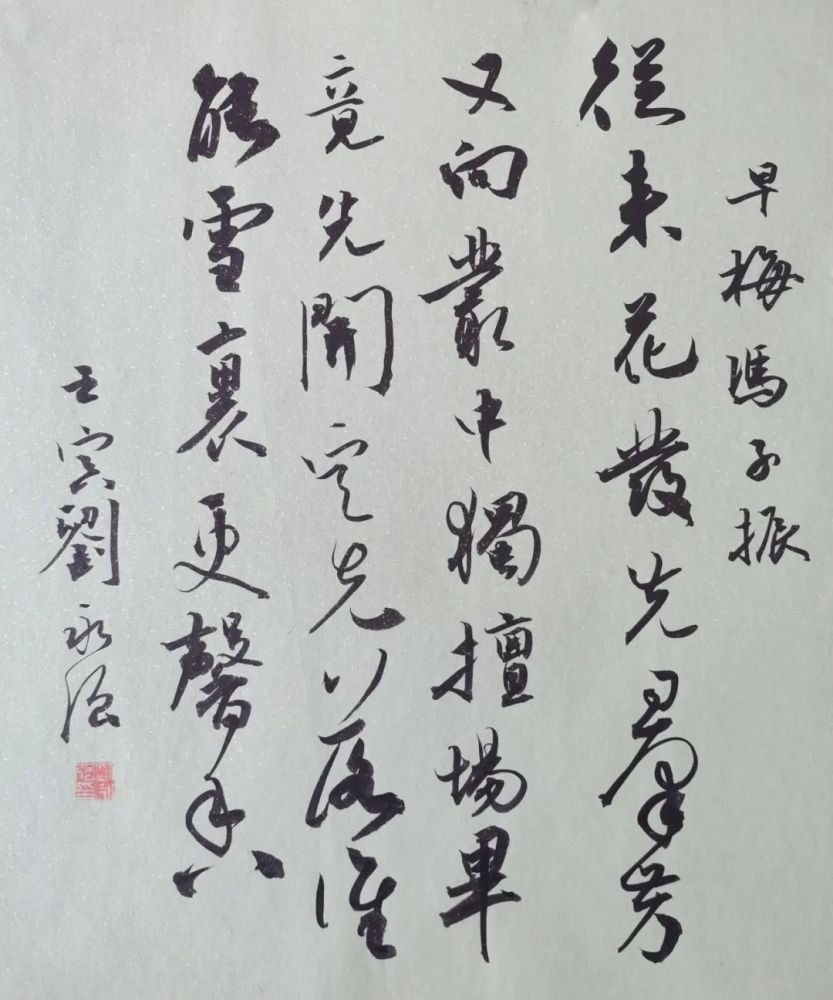 早梅 馮子振
從來花發先羣芳
又向叢中獨擅場畢
竟先開定先落誰
能雪裏更馨香
壬寅劉永